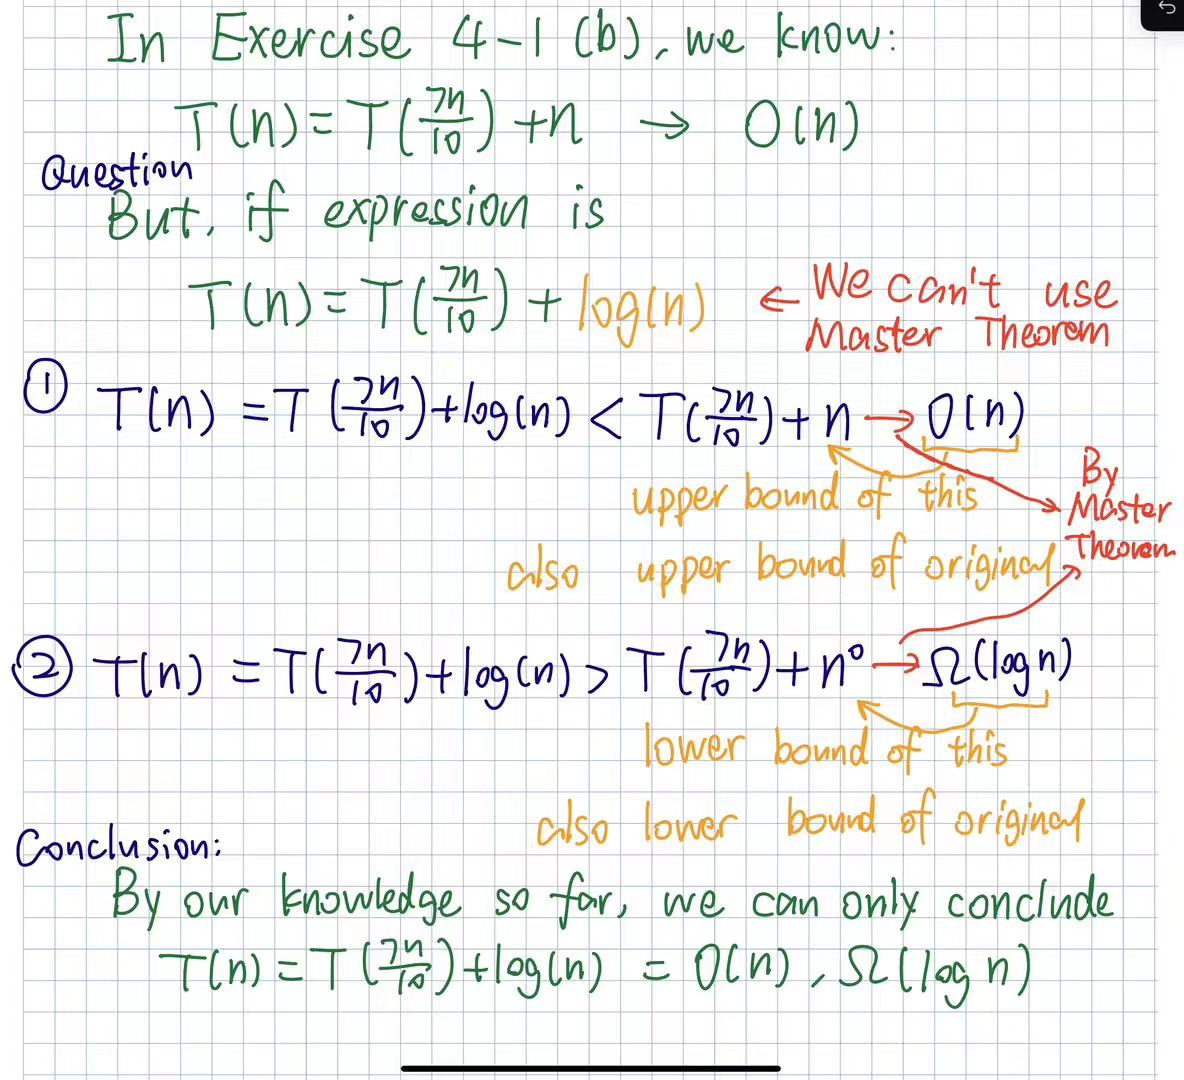 In Exercise 4-1 (b), we know:
T(n) = T(7n/10) + n → O(n)
Question
But, if expression is
T(n) = T(7n/10) + log(n) ← We can't use
Master Theorem
① T(n) = T(7n/10) + log(n) < T(7n/10) + n → O(n)
upper bound of this
also upper bound of original
By
Master
Theorem
② T(n) = T(7n/10) + log(n) > T(7n/10) + n⁰ → Ω(log n)
lower bound of this
also lower bound of original
Conclusion:
By our knowledge so far, we can only conclude
T(n) = T(7n/10) + log(n) = O(n), Ω(log n)